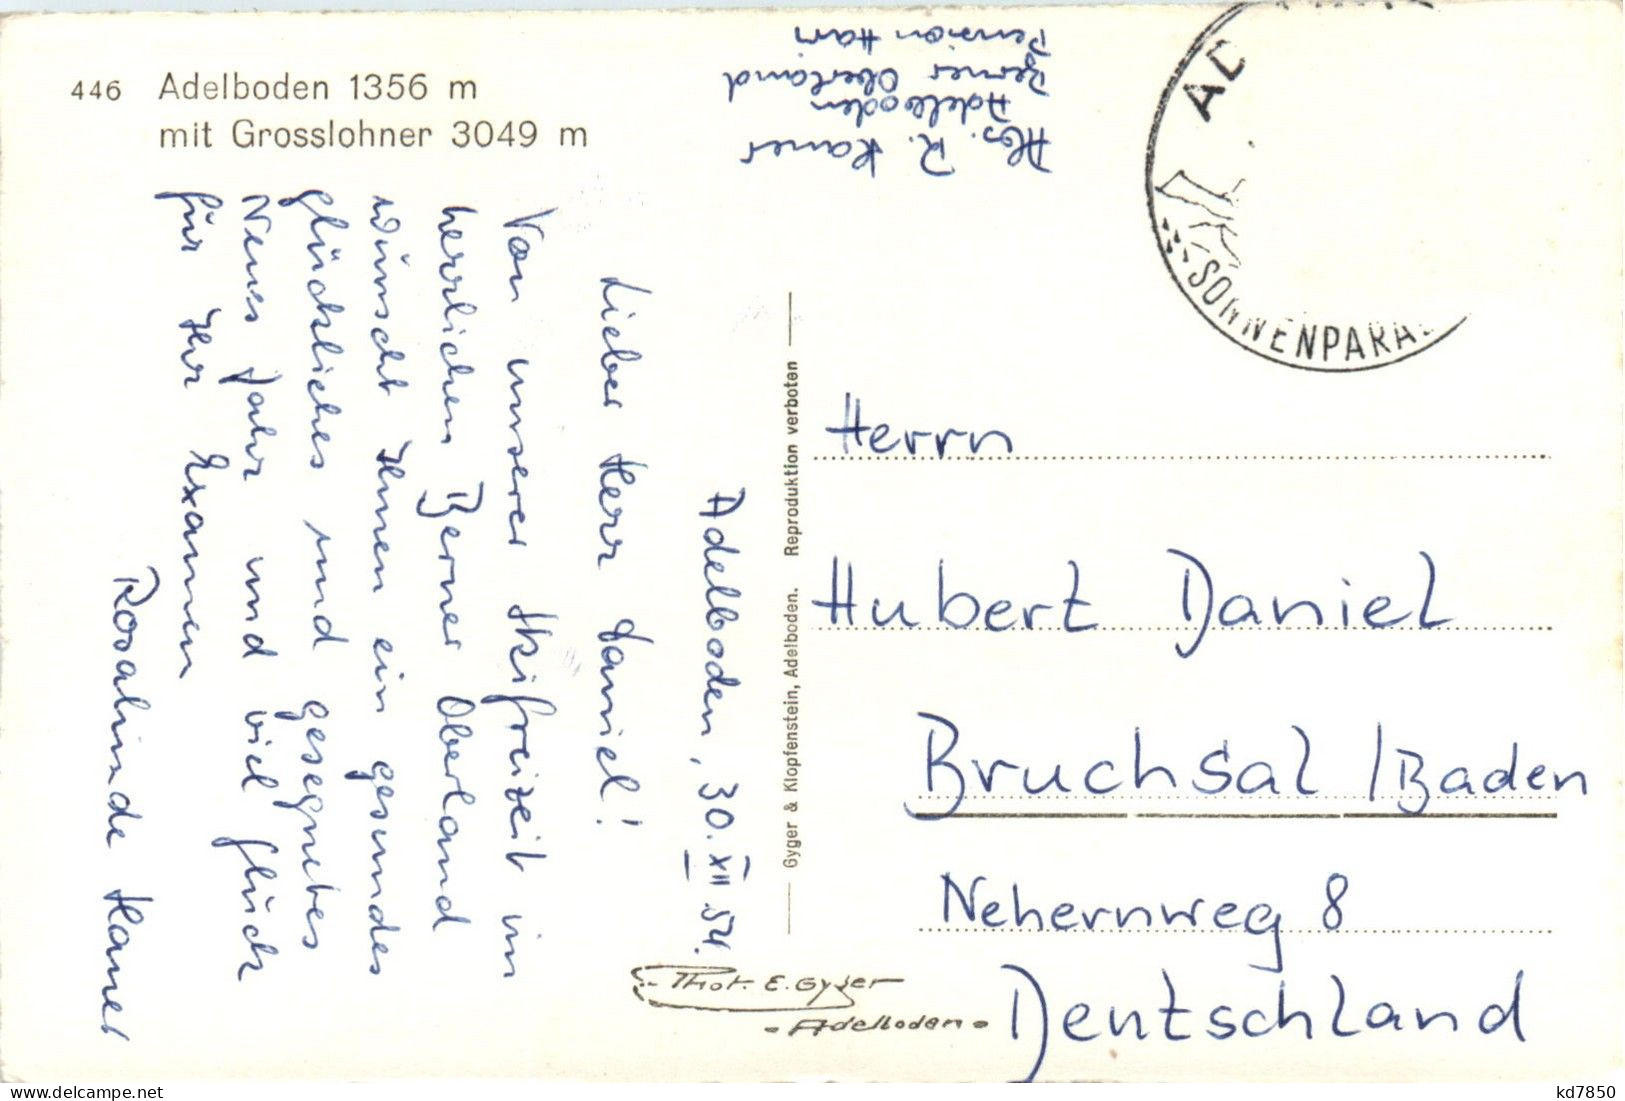 446 Adelboden 1356 m
mit Grosslohner 3049 m
Abs. R. Kaner
Adelboden
Berner Oberland
Pension Hari
AD
SONNENPARA
Adelboden, 30. XII 54.
Lieber Herr Daniel!
Von unserer Skifreizeit im
herrlichen Berner Oberland
wünscht Ihnen ein gesundes
glückliches und gesegnetes
Neues Jahr und viel Glück
für Ihr Examen
Rosalinde Kaner
Gyger & Klopfenstein, Adelboden. Reproduktion verboten
Phot. E. Gyger
- Adelboden -
Herrn
Hubert Daniel
Bruchsal / Baden
Nehernweg 8
Deutschland
kd7850